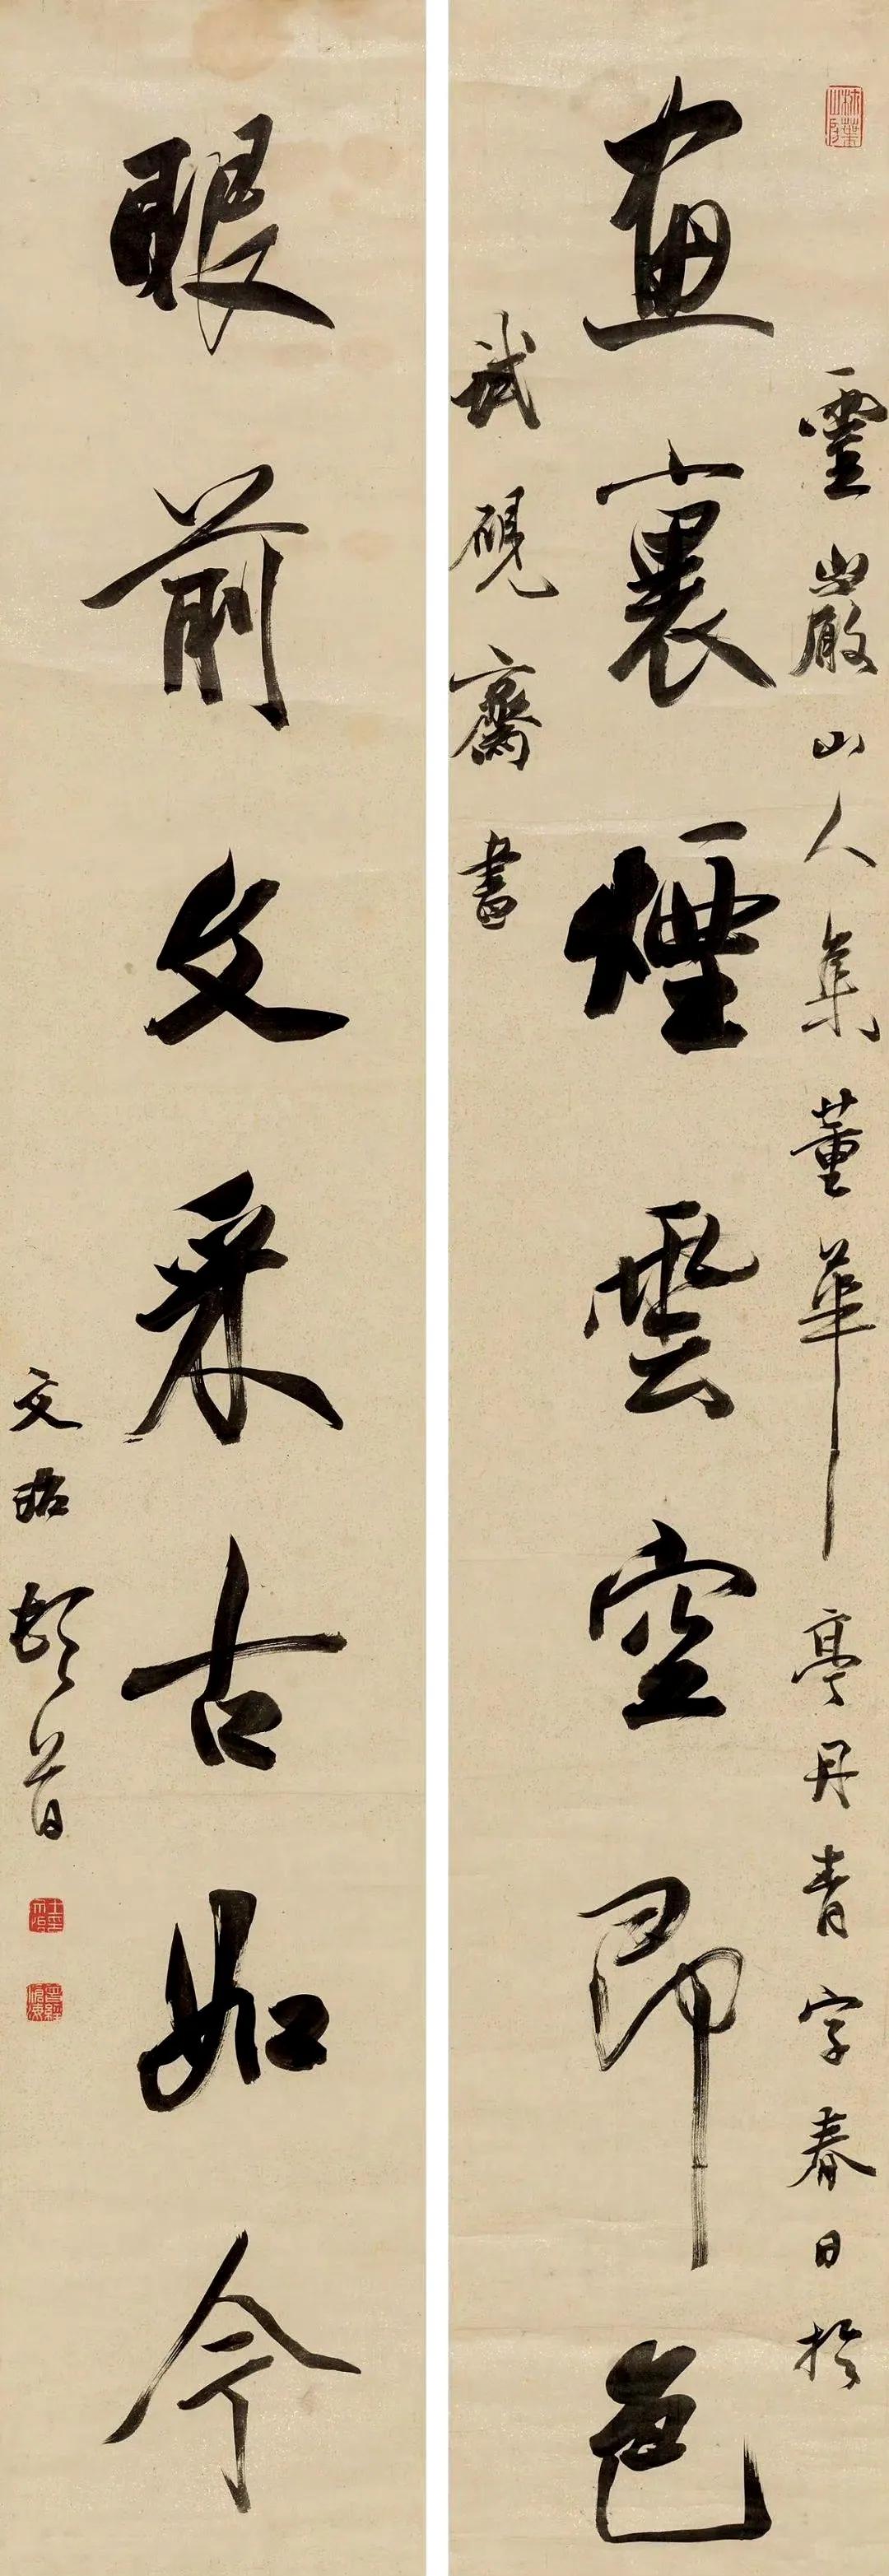 靈巖山人集董華亭丹青字春日於
畫裏煙雲空即色
試硯齋書
眼前文采古如今
文治頓首